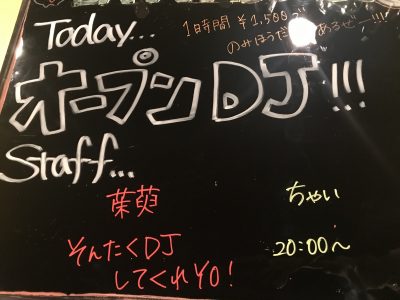 Today...
1時間 ¥1,500で
のみほうだい あるゼ!!!
オープンDJ!!!
Staff...
ちゃい
そんたくDJ
してくれYO!
20:00〜